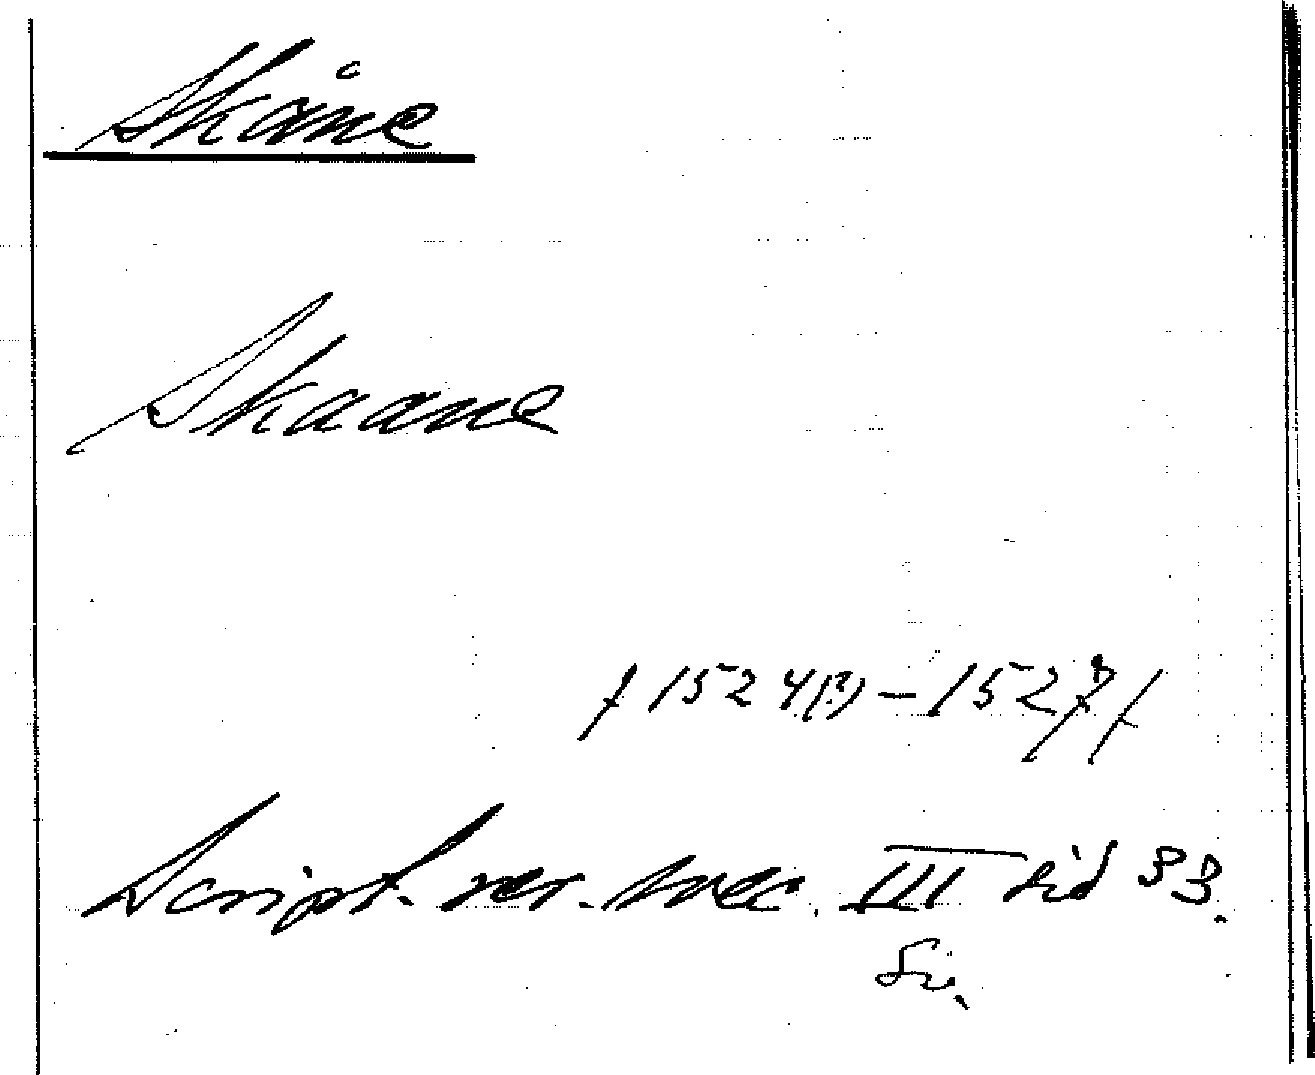 Skåne
Skaane
/1524(?)-1527/
Script. rer. svec. III sid 33.